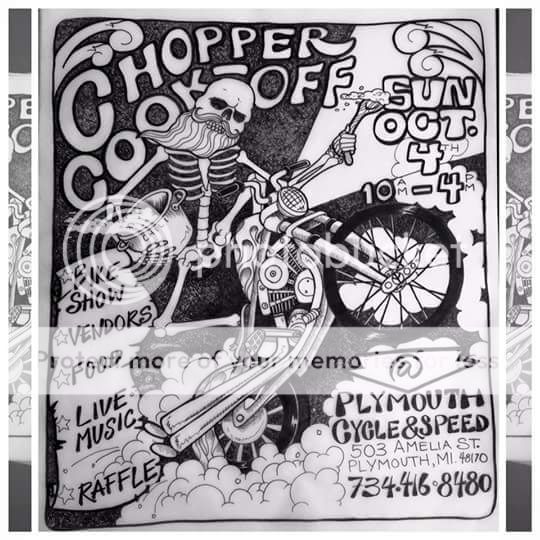 CHOPPER
COOK-OFF
SUN
OCT.
4TH
10AM-4PM
BIKE
SHOW
VENDORS
FOOD
LIVE
MUSIC
RAFFLE
@
PLYMOUTH
CYCLE & SPEED
503 AMELIA ST.
PLYMOUTH, MI. 48170
734·416·8480
photobucket
Protect more of your memories for less